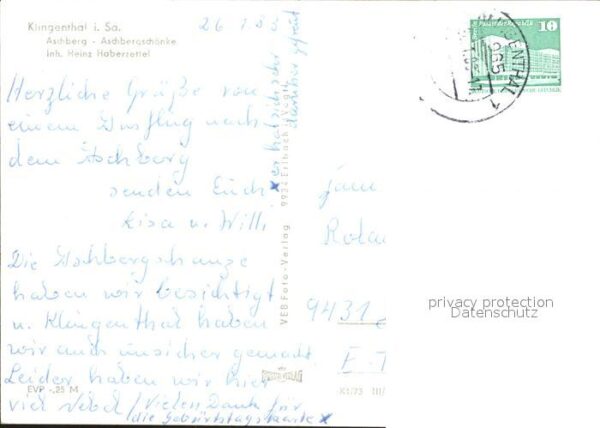 Klingenthal i. Sa.
Aschberg - Aschbergschänke
Inh. Heinz Haberzettel
26 1 83
Herzliche Grüße von
einem Ausflug nach
dem Aschberg
senden Euch
Lisa u. Willi
Die Aschbergschanze
haben wir besichtigt
u. Klingenthal haben
wir auch unsicher gemacht
Leider haben wir hier
viel Nebel / Vielen Dank für
die Geburtstagskarte x
x er hat sich sehr
darüber gefreut
VEB Foto-Verlag 9934 Erlbach i. Vogtl.
EVP -,25 M
10
KLINGENTHAL 1
965
Fam
9431
privacy protection
Datenschutz